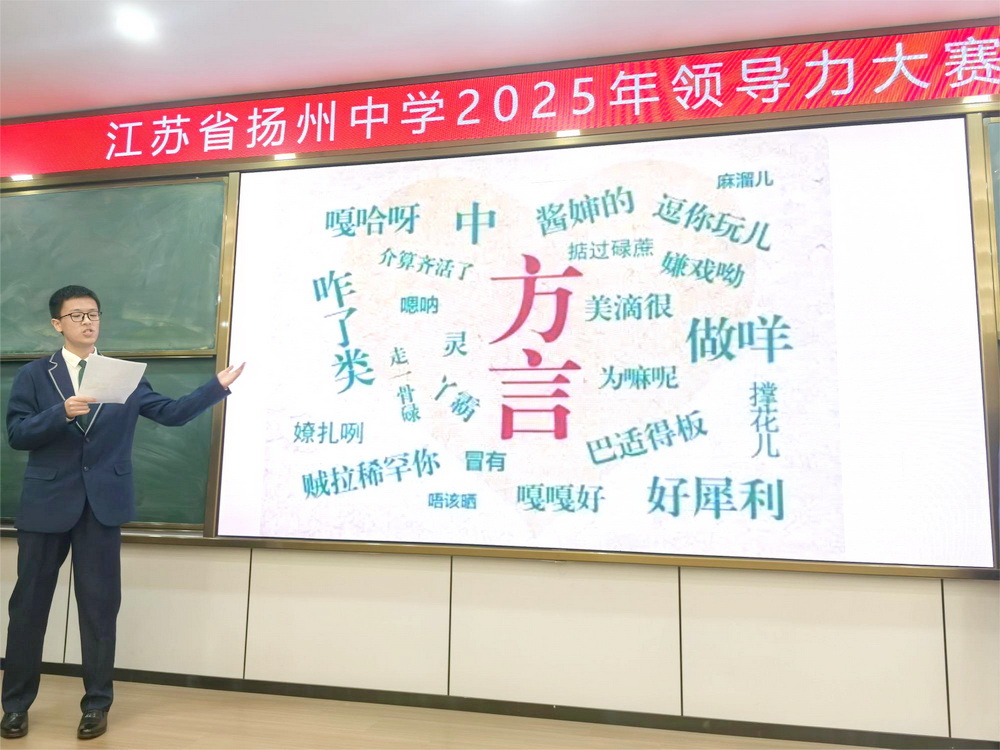 江苏省扬州中学2025年领导力大赛
麻溜儿
嘎哈呀
中
酱婶的
逗你玩儿
介算齐活了
掂过碌蔗
嫌戏呦
咋了类
嗯呐
方言
美滴很
灵
做咩
走一骨碌
丫霸
为嘛呢
撑花儿
嫽扎咧
巴适得板
贼拉稀罕你
冒有
唔该晒
嘎嘎好
好犀利